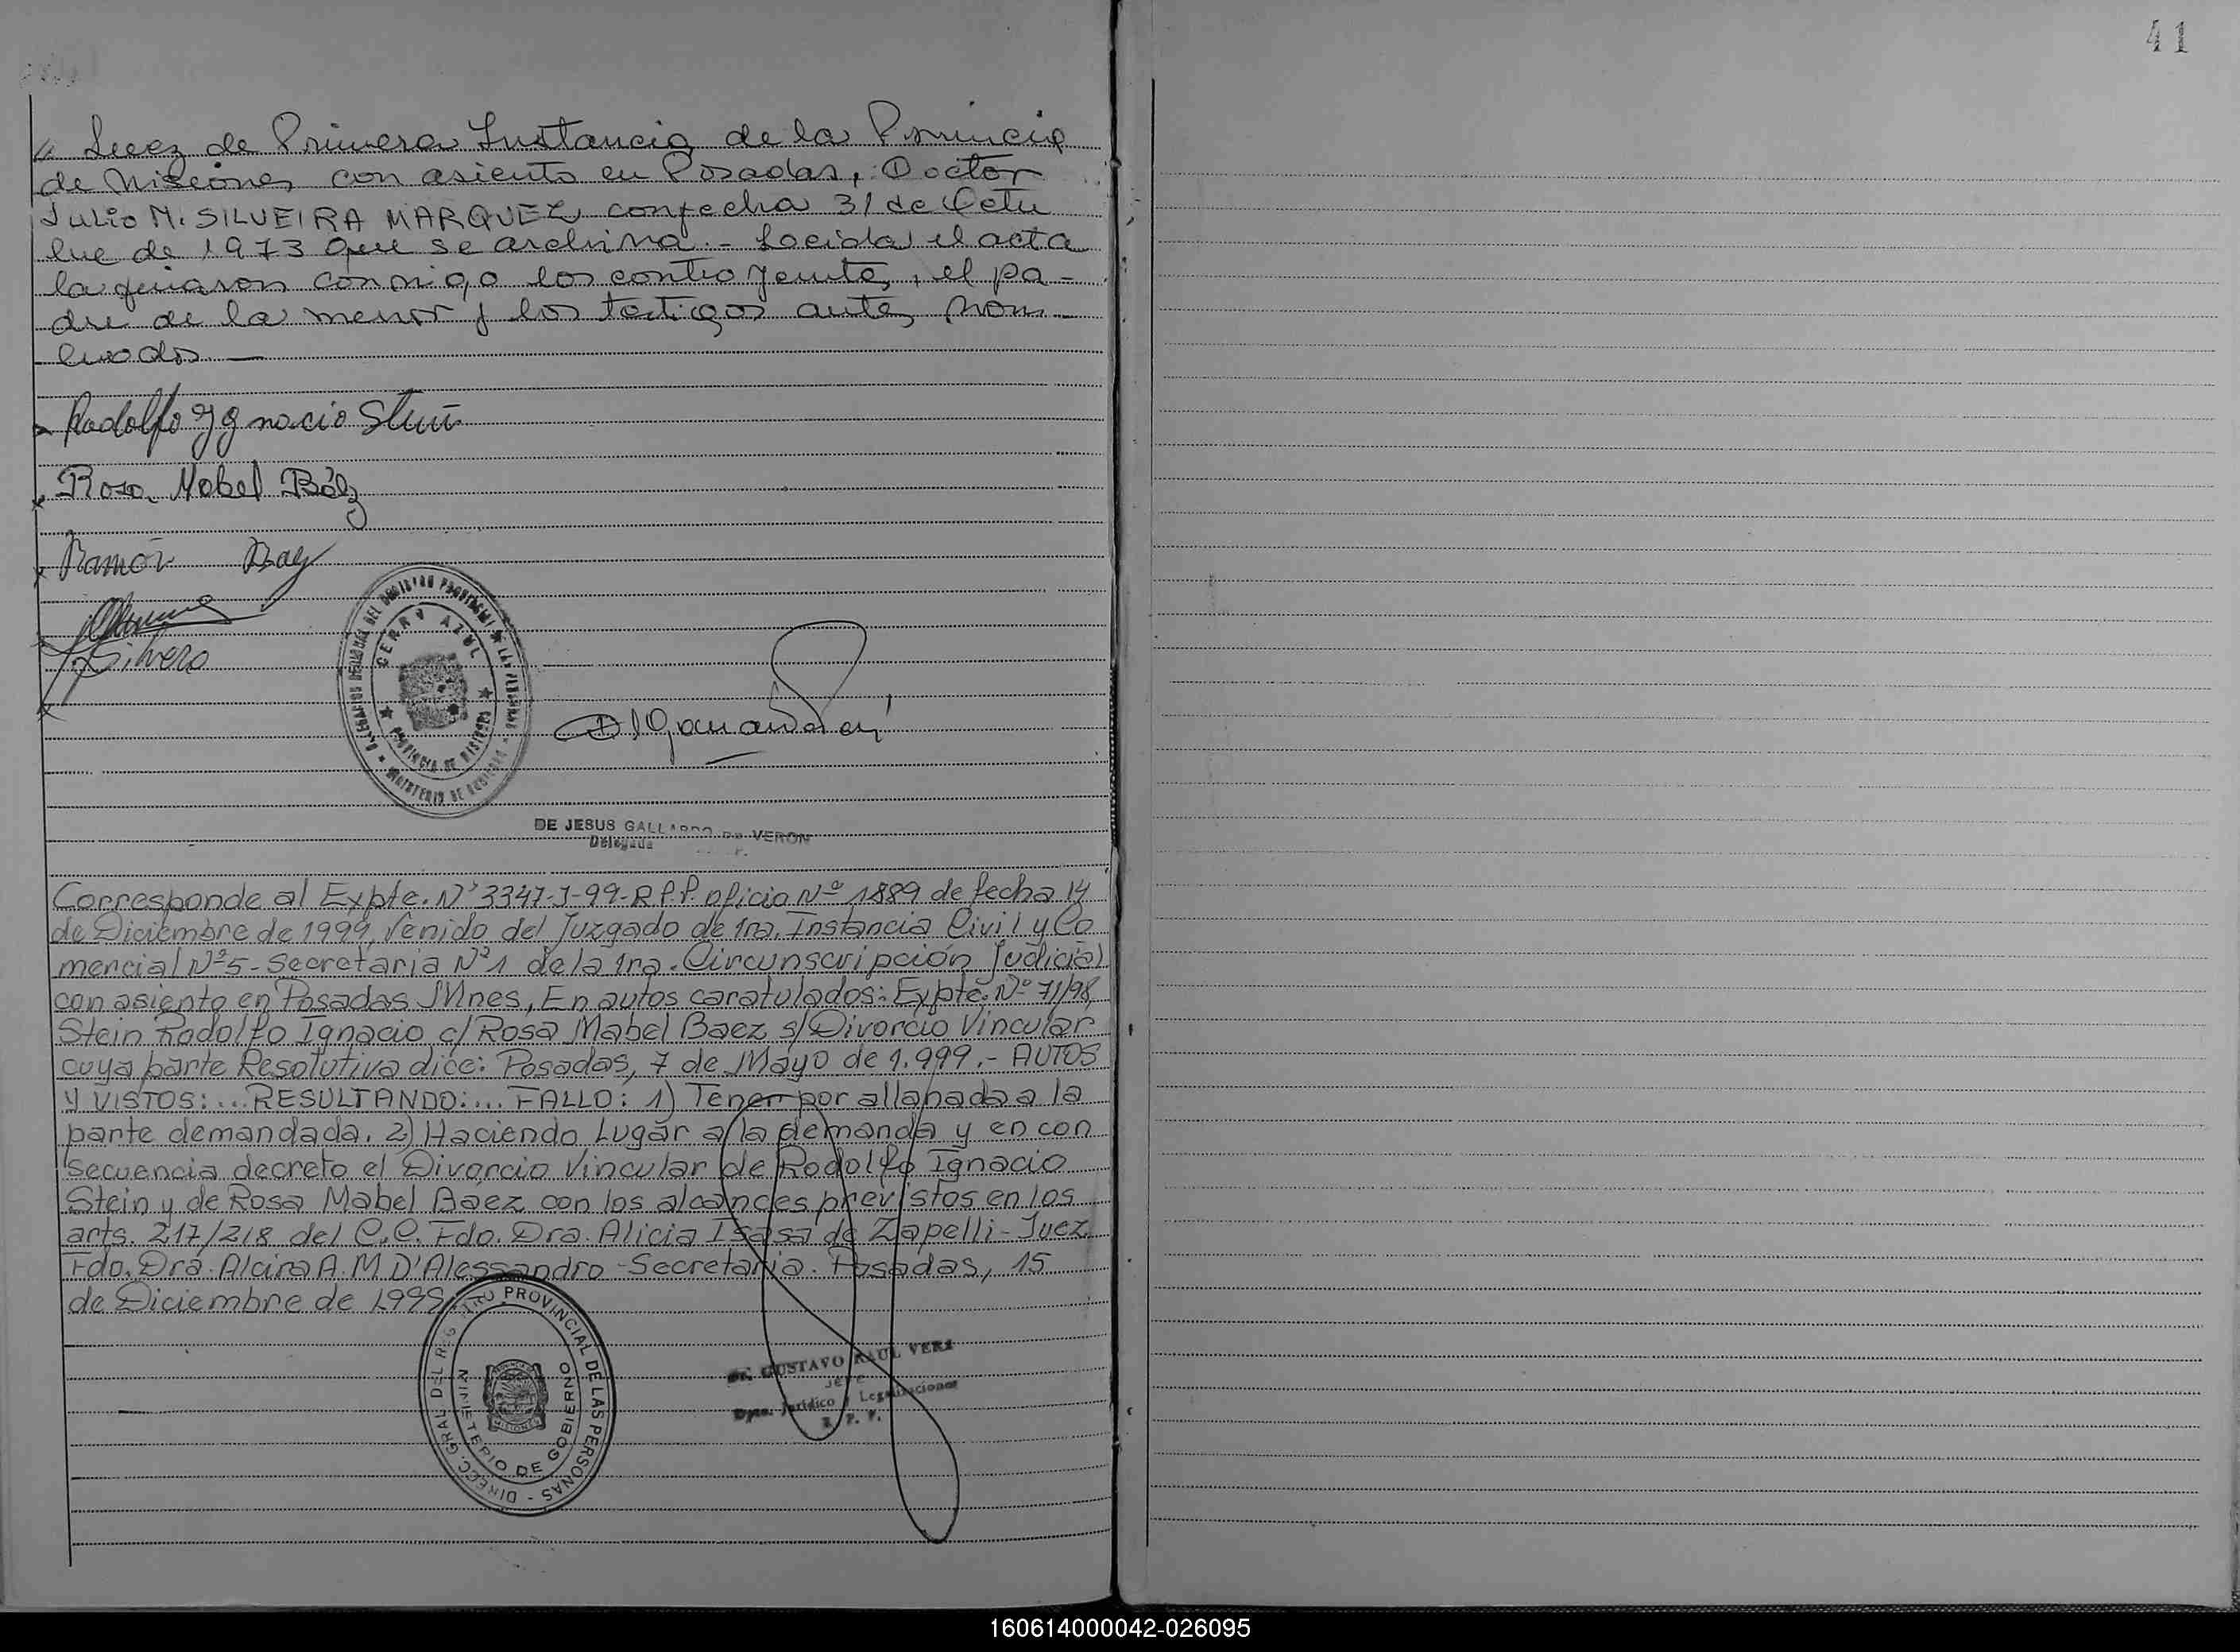 41
" Juez de Primera Instancia de la Provincia
de Misiones con asiento en Posadas, Doctor
JULIO N. SILVEIRA MARQUEZ con fecha 31 de Octu
bre de 1973 que se archiva.- Leeida el acta
la firmaron conmigo los contrayentes, el pa-
dre de la menor y los testigos antes nom-
brados.—
Rodolfo Ygnacio Stein
Rosa Mabel Báez
Ramón Baez
Silvero
CERRO AZUL
PROVINCIA DE MISIONES
DE JESUS GALLARDO DE VERON
Delegada
Corresponde al Expte. Nº 3347-J-99-R.P.P. oficio Nº 1889 de fecha 14
de Diciembre de 1999, Venido del Juzgado de 1ra. Instancia Civil y Co
mercial Nº5-Secretaria Nº1 de la 1ra. Circunscripción Judicial
con asiento en Posadas Mnes, En autos caratulados: Expte. Nº 71/98,
Stein Rodolfo Ignacio c/ Rosa Mabel Baez s/Divorcio Vincular
cuya parte Resolutiva dice: Posadas, 7 de Mayo de 1.999.- AUTOS
Y VISTOS:... RESULTANDO:... FALLO: 1) Tener por allanada a la
parte demandada. 2) Haciendo Lugar a la demanda y en con
secuencia decreto el Divorcio Vincular de Rodolfo Ignacio
Stein y de Rosa Mabel Baez con los alcances previstos en los
arts. 217/218 del C.C. Fdo. Dra. Alicia Isasa de Zapelli-Juez
Fdo. Dra. Alcira A. M D'Alessandro-Secretaria. Posadas, 15
de Diciembre de 1999
DIRECC. GRAL DEL REGISTRO PROVINCIAL DE LAS PERSONAS -
MINISTERIO DE GOBIERNO
MISIONES
Dr. GUSTAVO RAUL VERA
JEFE
Dpto. Jurídico y Legalizaciones
R. P. P.
160614000042-026095